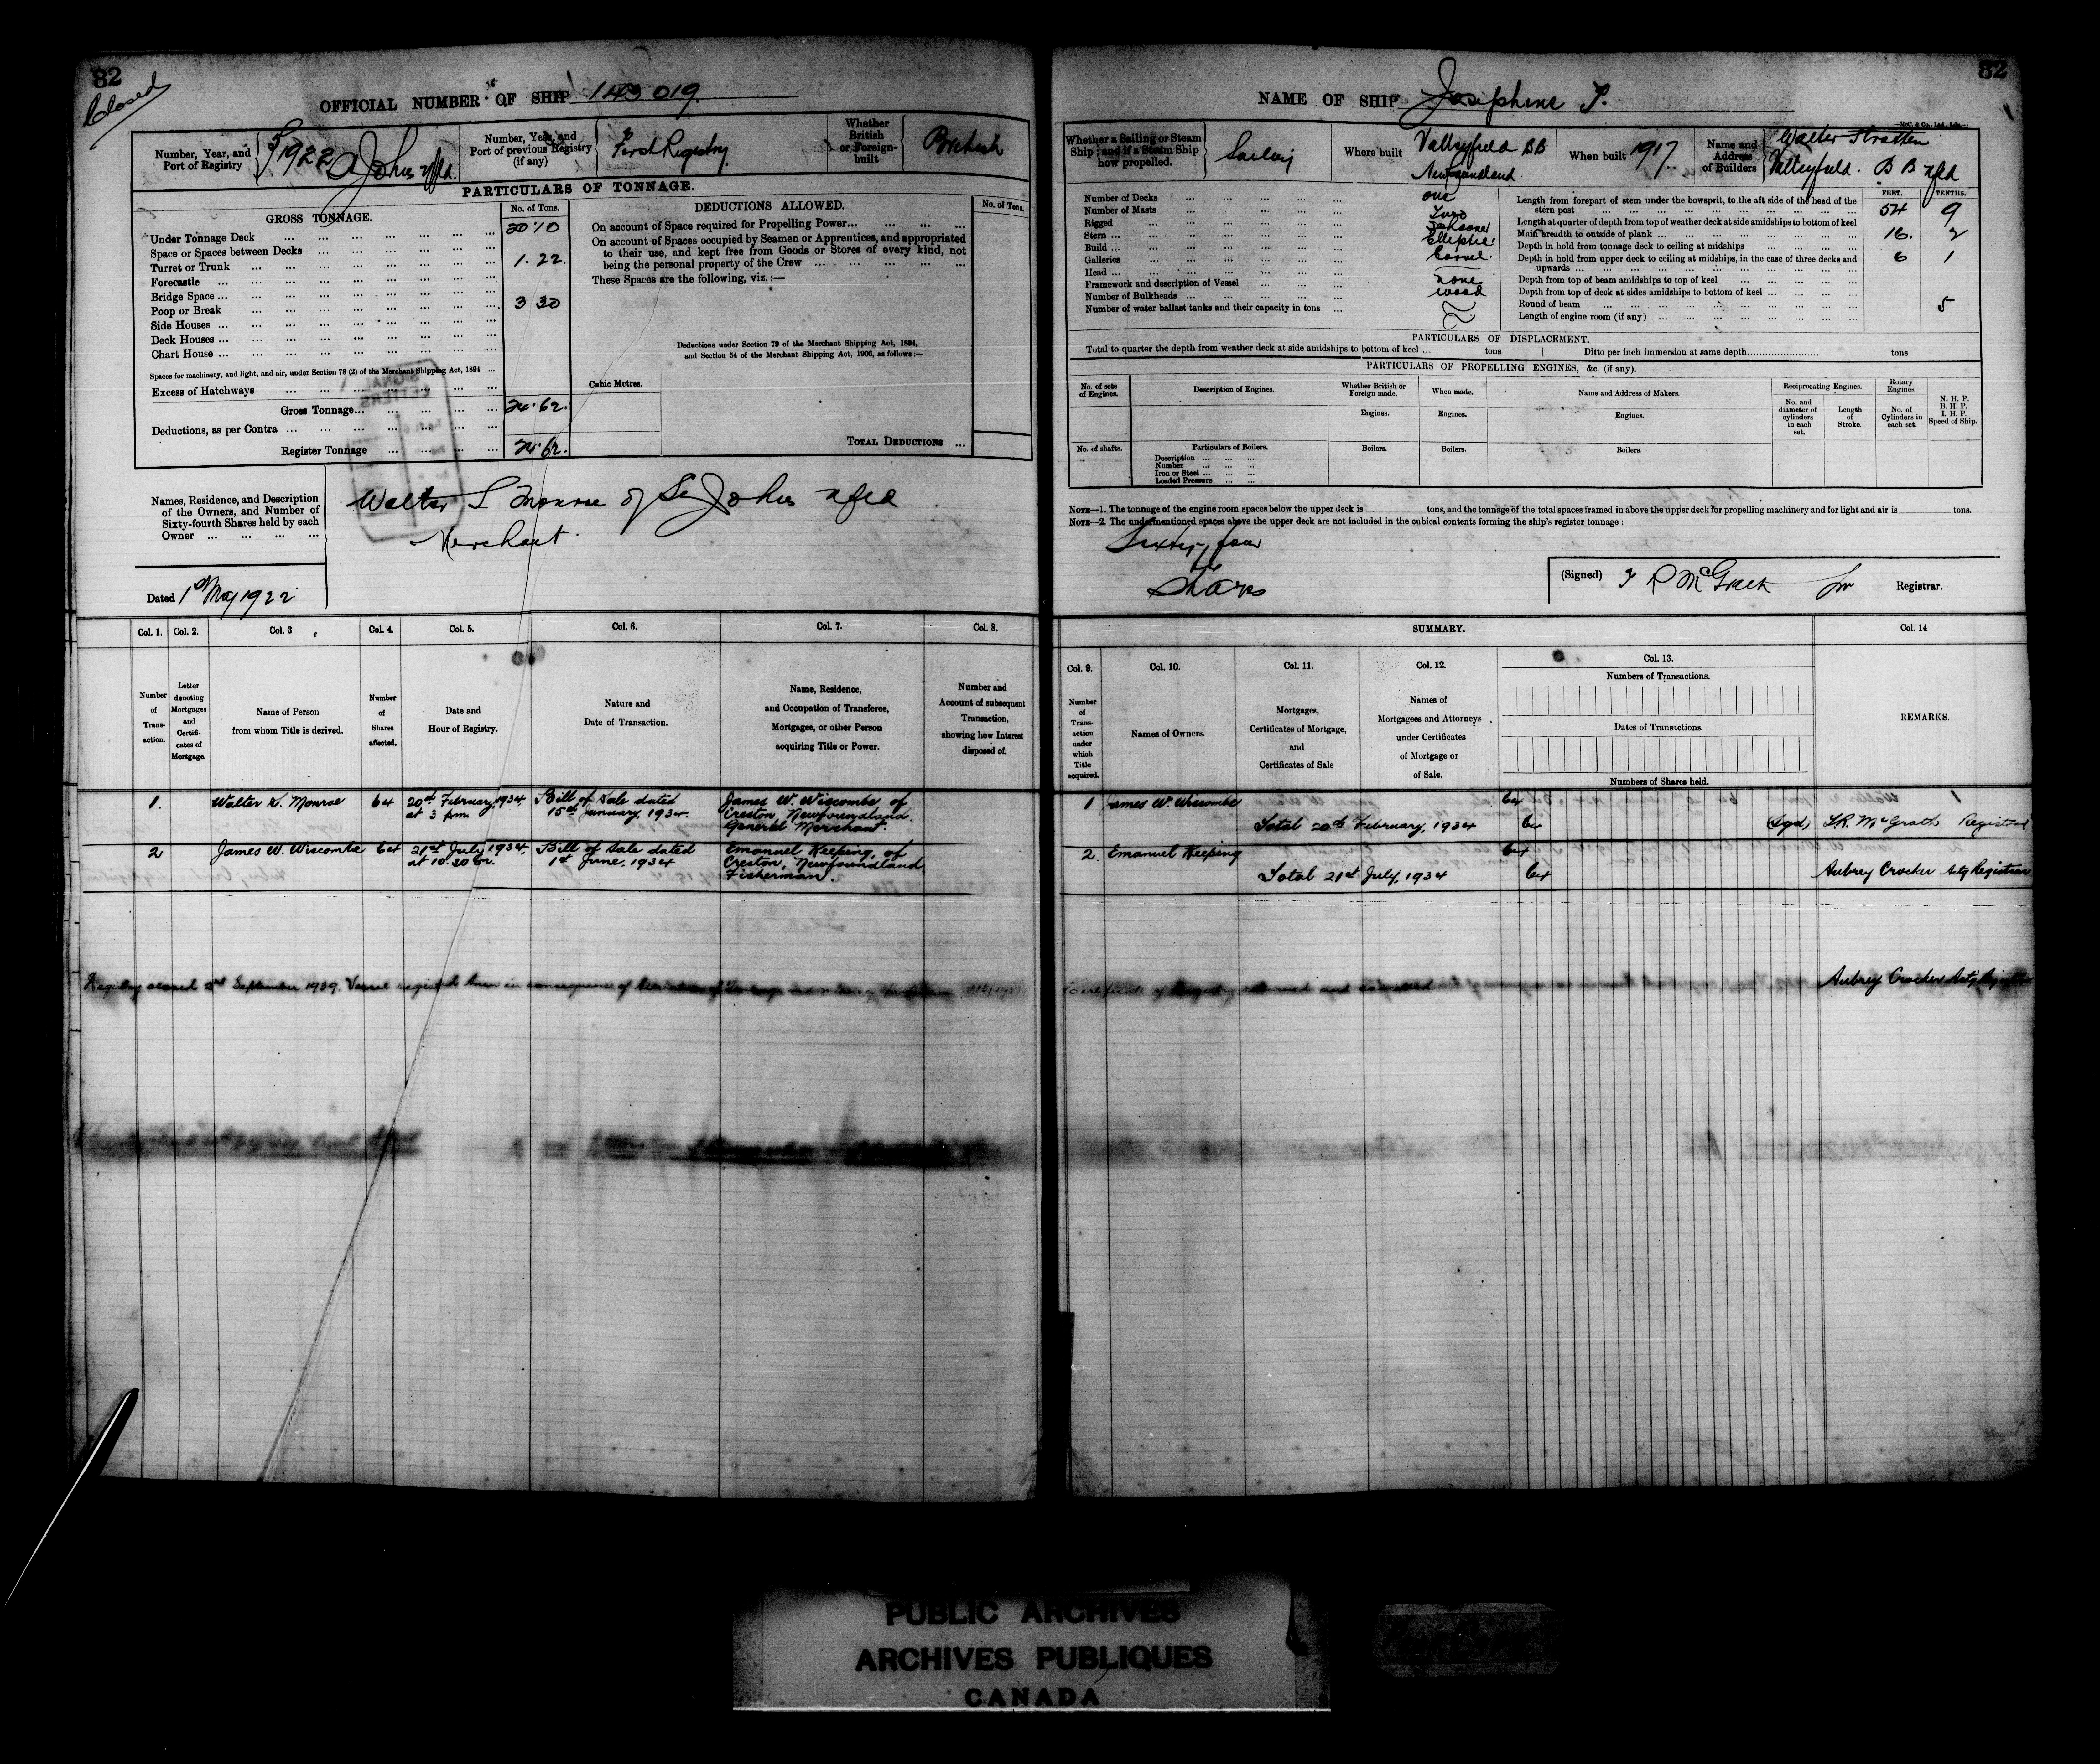 82
Closed
OFFICIAL NUMBER OF SHIP 143019.
Number, Year, and Port of Registry
1922 St Johns Nfld.
Number, Year, and Port of previous Registry (if any)
First Registry
Whether British or Foreign-built
British
PARTICULARS OF TONNAGE.
GROSS TONNAGE. No. of Tons.
Under Tonnage Deck 20.10
Space or Spaces between Decks
Turret or Trunk 1.22.
Forecastle
Bridge Space
Poop or Break 3 30
Side Houses
Deck Houses
Chart House
Spaces for machinery, and light, and air, under Section 78 (2) of the Merchant Shipping Act, 1894
Excess of Hatchways
Gross Tonnage 24.62.
Deductions, as per Contra
Register Tonnage 24.62.
DEDUCTIONS ALLOWED. No. of Tons.
On account of Space required for Propelling Power
On account of Spaces occupied by Seamen or Apprentices, and appropriated
to their use, and kept free from Goods or Stores of every kind, not
being the personal property of the Crew
These Spaces are the following, viz.:—
Deductions under Section 79 of the Merchant Shipping Act, 1894,
and Section 54 of the Merchant Shipping Act, 1906, as follows:—
Cubic Metres.
TOTAL DEDUCTIONS
Names, Residence, and Description
of the Owners, and Number of
Sixty-fourth Shares held by each
Owner
Walter S Monroe of St Johns Nfld
Merchant.
Dated 1st May 1922
Col. 1. Col. 2. Col. 3 Col. 4. Col. 5. Col. 6. Col. 7. Col. 8.
Number of Trans-action.
Letter denoting Mortgages and Certifi-cates of Mortgage.
Name of Person from whom Title is derived.
Number of Shares affected.
Date and Hour of Registry.
Nature and Date of Transaction.
Name, Residence, and Occupation of Transferee, Mortgagee, or other Person acquiring Title or Power.
Number and Account of subsequent Transaction, showing how Interest disposed of.
1. Walter S. Monroe 64 20th February, 1934, Bill of Sale dated James W. Wiscombe of
at 3 p.m. 15th January, 1934. Creston, Newfoundland.
General Merchant.
2 James W. Wiscombe 64 21st July, 1934, Bill of Sale dated Emanuel Keeping, of
at 10.30 1st June, 1934 Creston, Newfoundland
Fisherman.
Registry closed 2nd September 1939. Vessel registered anew in consequence of
82
NAME OF SHIP Josephine T.
McC. & Co., Ltd., Ldn.
Whether a Sailing or Steam Ship; and if a Steam Ship how propelled.
Sailing
Where built
Valleyfield BB
Newfoundland
When built 1917
Name and Address of Builders
Walter Stratten
Valleyfield. B B Nfld
Number of Decks one
Number of Masts Two
Rigged Schooner
Stern Elliptic
Build Carvel.
Galleries
Head none
Framework and description of Vessel wood
Number of Bulkheads
Number of water ballast tanks and their capacity in tons
FEET. TENTHS.
Length from forepart of stem under the bowsprit, to the aft side of the head of the
stern post 54 9
Length at quarter of depth from top of weather deck at side amidships to bottom of keel
Main breadth to outside of plank 16. 2
Depth in hold from tonnage deck to ceiling at midships 6 1
Depth in hold from upper deck to ceiling at midships, in the case of three decks and
upwards
Depth from top of beam amidships to top of keel
Depth from top of deck at sides amidships to bottom of keel
Round of beam 5
Length of engine room (if any)
PARTICULARS OF DISPLACEMENT.
Total to quarter the depth from weather deck at side amidships to bottom of keel ... tons Ditto per inch immersion at same depth tons
PARTICULARS OF PROPELLING ENGINES, &c. (if any).
No. of sets of Engines.
Description of Engines.
Whether British or Foreign made.
When made.
Name and Address of Makers.
Reciprocating Engines.
Rotary Engines.
N. H. P.
B. H. P.
I. H. P.
Speed of Ship.
Engines. Engines. Engines.
No. and diameter of cylinders in each set.
Length of Stroke.
No. of Cylinders in each set.
No. of shafts.
Particulars of Boilers.
Boilers. Boilers. Boilers.
Description
Number
Iron or Steel
Loaded Pressure
NOTE—1. The tonnage of the engine room spaces below the upper deck is tons, and the tonnage of the total spaces framed in above the upper deck for propelling machinery and for light and air is tons.
NOTE—2. The undermentioned spaces above the upper deck are not included in the cubical contents forming the ship's register tonnage:
Sixty-four
Shares
(Signed) McGrath Registrar.
SUMMARY.
Col. 9. Col. 10. Col. 11. Col. 12. Col. 13. Col. 14
Number of Trans-action under which Title acquired.
Names of Owners.
Mortgages, Certificates of Mortgage, and Certificates of Sale
Names of Mortgagees and Attorneys under Certificates of Mortgage or of Sale.
Numbers of Transactions.
Dates of Transactions.
Numbers of Shares held.
REMARKS.
1 James W. Wiscombe 64
Total 20th February, 1934 64 (sgd) McGrath Registrar
2. Emanuel Keeping 64
Total 21st July, 1934 64 Aubrey Crocker Actg Registrar
Certificate of Registry returned and cancelled Aubrey Crocker Actg Registrar
PUBLIC ARCHIVES
ARCHIVES PUBLIQUES
CANADA